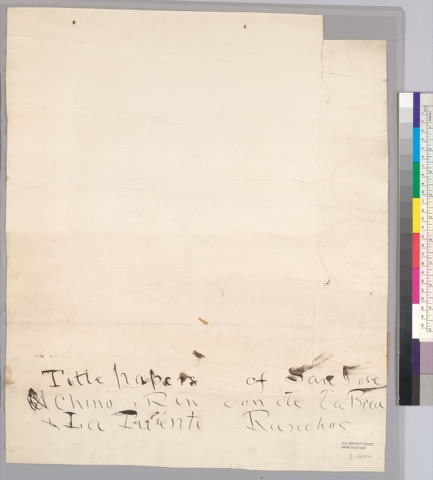 Title papers of San Jose
& Chino, Rin con de La Brea
& La Puente Ranchos
U.S. DISTRICT COURT